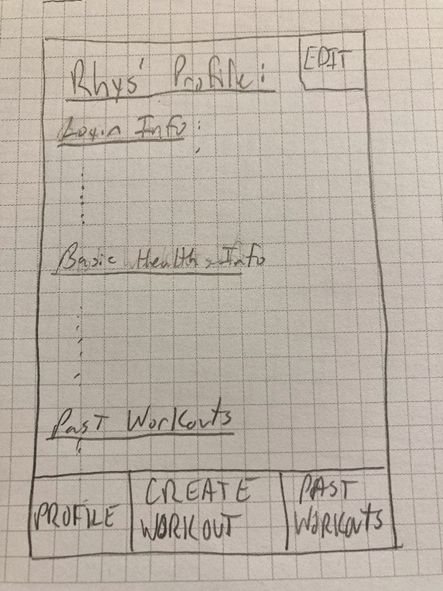 Rhys' Profile:
EDIT
Login Info:
Basic Health Info
Past Workouts
PROFILE
CREATE
WORKOUT
PAST
WORKOUTS